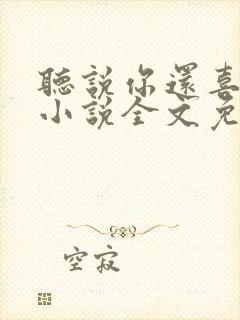 聽說你還喜
小說全文免
空寂